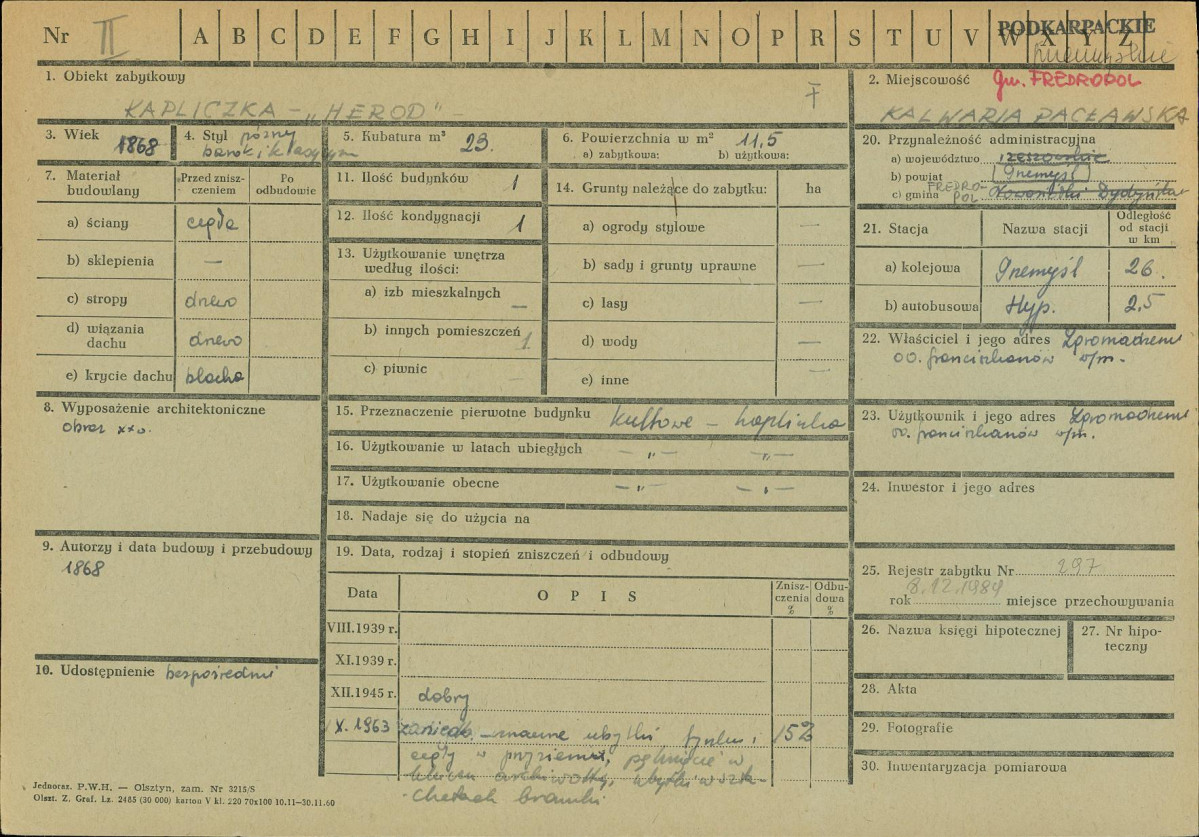 Nr II A B C D E F G H I J K L M N O P R S T U V W X Y Z
PODKARPACKIE
1. Obiekt zabytkowy
KAPLICZKA – „HEROD"
2. Miejscowość Gm. FREDROPOL
KALWARIA PACŁAWSKA
3. Wiek 1868
4. Styl późny
barok i klasycyzm
5. Kubatura m³ 23.
6. Powierzchnia w m² 11,5
a) zabytkowa: b) użytkowa:
7. Materiał budowlany
Przed zniszczeniem
Po odbudowie
a) ściany cegła
b) sklepienia —
c) stropy drewo
d) wiązania dachu drewo
e) krycie dachu blacha
8. Wyposażenie architektoniczne
obraz XX w.
9. Autorzy i data budowy i przebudowy
1868
10. Udostępnienie bezpośredni
11. Ilość budynków 1
12. Ilość kondygnacji 1
13. Użytkowanie wnętrza według ilości:
a) izb mieszkalnych —
b) innych pomieszczeń 1
c) piwnic —
14. Grunty należące do zabytku: ha
a) ogrody stylowe —
b) sady i grunty uprawne —
c) lasy —
d) wody —
e) inne
15. Przeznaczenie pierwotne budynku kultowe – kapliczka
16. Użytkowanie w latach ubiegłych —„— —„—
17. Użytkowanie obecne —„— —„—
18. Nadaje się do użycia na
19. Data, rodzaj i stopień zniszczeń i odbudowy
Data OPIS Zniszczenia % Odbudowa %
VIII.1939 r.
XI.1939 r.
XII.1945 r. dobry
X. 1963 zanied. – znaczne ubytki tynku i 15%
cegły w przyziemiu, pęknięcie w
kluczu archiwolty, ubytki w szta-
chetach bramki
20. Przynależność administracyjna
a) województwo rzeszowskie
b) powiat Przemyśl
c) gmina FREDROPOL
21. Stacja Nazwa stacji Odległość od stacji w km
a) kolejowa Przemyśl 26.
b) autobusowa Hyp. 2,5
22. Właściciel i jego adres Zgromadzenie
OO. franciszkanów w/m.
23. Użytkownik i jego adres Zgromadzenie
oo. franciszkanów w/m.
24. Inwestor i jego adres
25. Rejestr zabytku Nr 297
8.12.1984
rok miejsce przechowywania
26. Nazwa księgi hipotecznej
27. Nr hipoteczny
28. Akta
29. Fotografie
30. Inwentaryzacja pomiarowa
Jednoraz. P.W.H. — Olsztyn, zam. Nr 3215/S
Olszt. Z. Graf. Lz. 2485 (30 000) karton V kl. 220 70x100 10.11—30.11.60